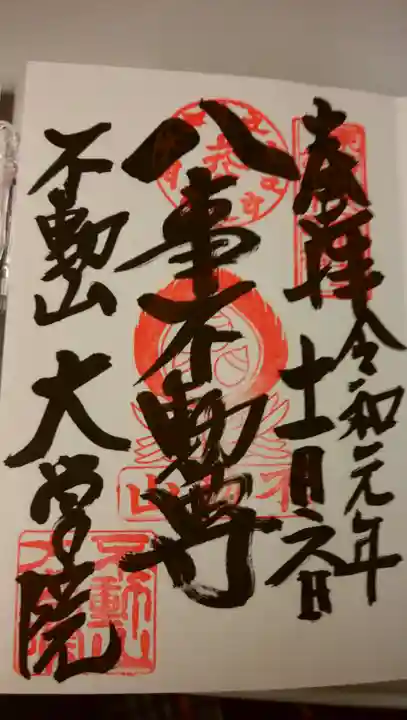 奉拝
令和元年
十一月六日
八事不動尊
不動山
大学院
不動山